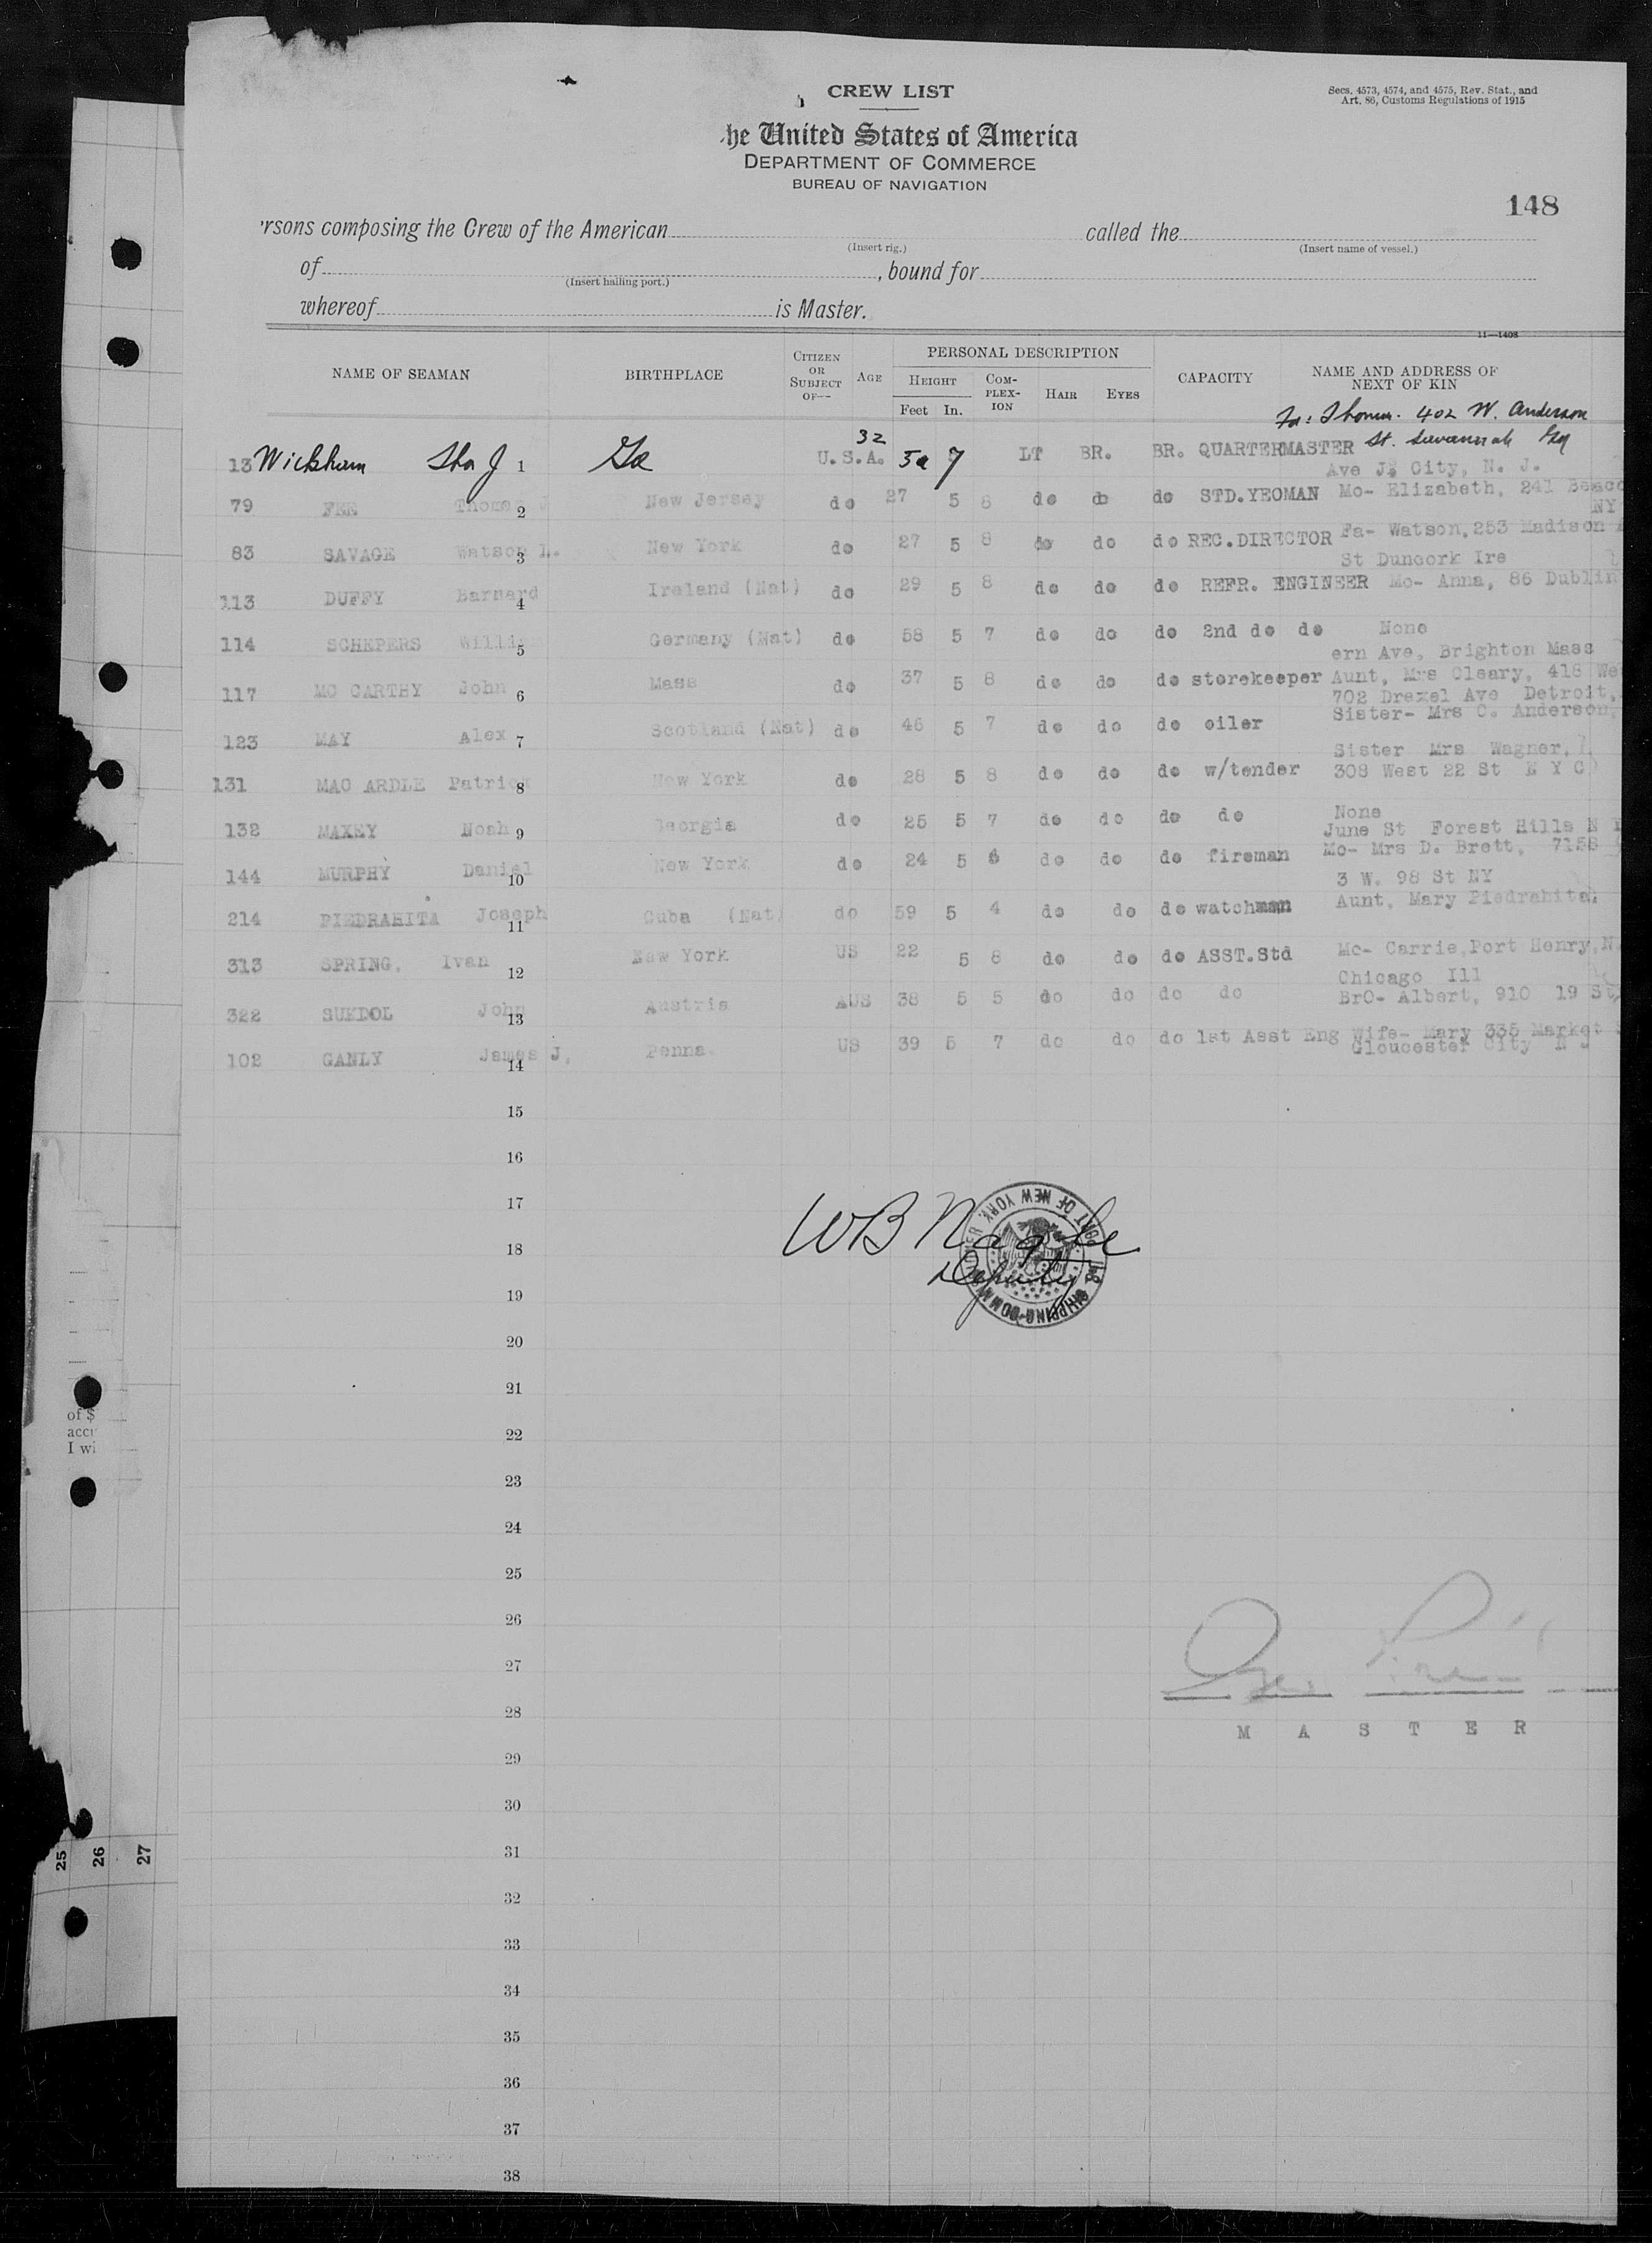 CREW LIST
Secs. 4573, 4574, and 4575, Rev. Stat., and
Art. 86, Customs Regulations of 1915
he United States of America
DEPARTMENT OF COMMERCE
BUREAU OF NAVIGATION
148
rsons composing the Crew of the American called the
(Insert rig.) (Insert name of vessel.)
of , bound for
(Insert hailing port.)
whereof is Master.
11—1408
NAME OF SEAMAN BIRTHPLACE CITIZEN OR SUBJECT OF— AGE PERSONAL DESCRIPTION HEIGHT Feet In. COMPLEXION HAIR EYES CAPACITY NAME AND ADDRESS OF NEXT OF KIN
Fa: Thomas. 402 W. Anderson
St. Savannah
13 Wickham Thos J 1 Ga U.S.A. 32 5 7 LT BR. BR. QUARTERMASTER
Ave Js City, N. J.
79 FEE Thomas J 2 New Jersey do 27 5 8 do do do STD.YEOMAN Mo- Elizabeth, 241
NY
83 SAVAGE Watson L. 3 New York do 27 5 8 do do do REC.DIRECTOR Fa- Watson, 253 Madison
St Duncork Ire
113 DUFFY Barnard 4 Ireland (Nat) do 29 5 8 do do do REFR. ENGINEER Mo- Anna, 86 Dublin
114 SCHEPERS Willi 5 Germany (Nat) do 58 5 7 do do do 2nd do do None
ern Ave, Brighton Mass
117 MC CARTHY John 6 Mass do 37 5 8 do do do storekeeper Aunt, Mrs Cleary, 418 We
702 Drexel Ave Detroit,
123 MAY Alex 7 Scotland (Nat) do 46 5 7 do do do oiler Sister- Mrs C. Anderson,
Sister Mrs Wagner,
131 MAC ARDLE Patrick 8 New York do 28 5 8 do do do w/tender 308 West 22 St N Y C
132 MAXEY Noah 9 Georgia do 25 5 7 do do do do None
June St Forest Hills N Y
144 MURPHY Daniel 10 New York do 24 5 6 do do do fireman Mo- Mrs D. Brett, 7158
3 W. 98 St NY
214 PIEDRAHITA Joseph 11 Cuba (Nat) do 59 5 4 do do do watchman Aunt, Mary Piedrahita,
313 SPRING, Ivan 12 New York US 22 5 8 do do do ASST.Std Mo- Carrie, Port Henry, N.
Chicago Ill
322 SUKDOL John 13 Austria AUS 38 5 5 do do do do BrO- Albert, 910 19 St,
102 GANLY James J, 14 Penna US 39 5 7 do do do 1st Asst Eng Wife- Mary 335 Market
Gloucester City N J
15
16
17
18
19
20
21
22
23
24
25
26
27
28
29
30
31
32
33
34
35
36
37
38
WB
Deputy
PORT OF NEW YORK
M A S T E R
of $
acc
I wi
25
26
27